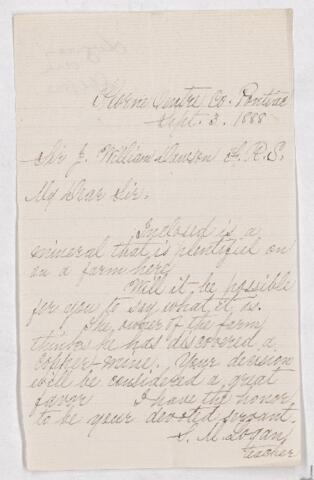 Thorne Centre Co. Pontiac
Sept. 3. 1888
Sir J. William Dawson F.R.S.
My Dear Sir.
Inclosed is a
mineral that is plentiful on
on a farm here
Will it be possible
for you to say what it is.
The owner of the farm
thinks he has discovered a
copper-mine. Your decision
will be considered a great
favor I have the honor
to be your devoted servant.
S. M. Logan,
teacher